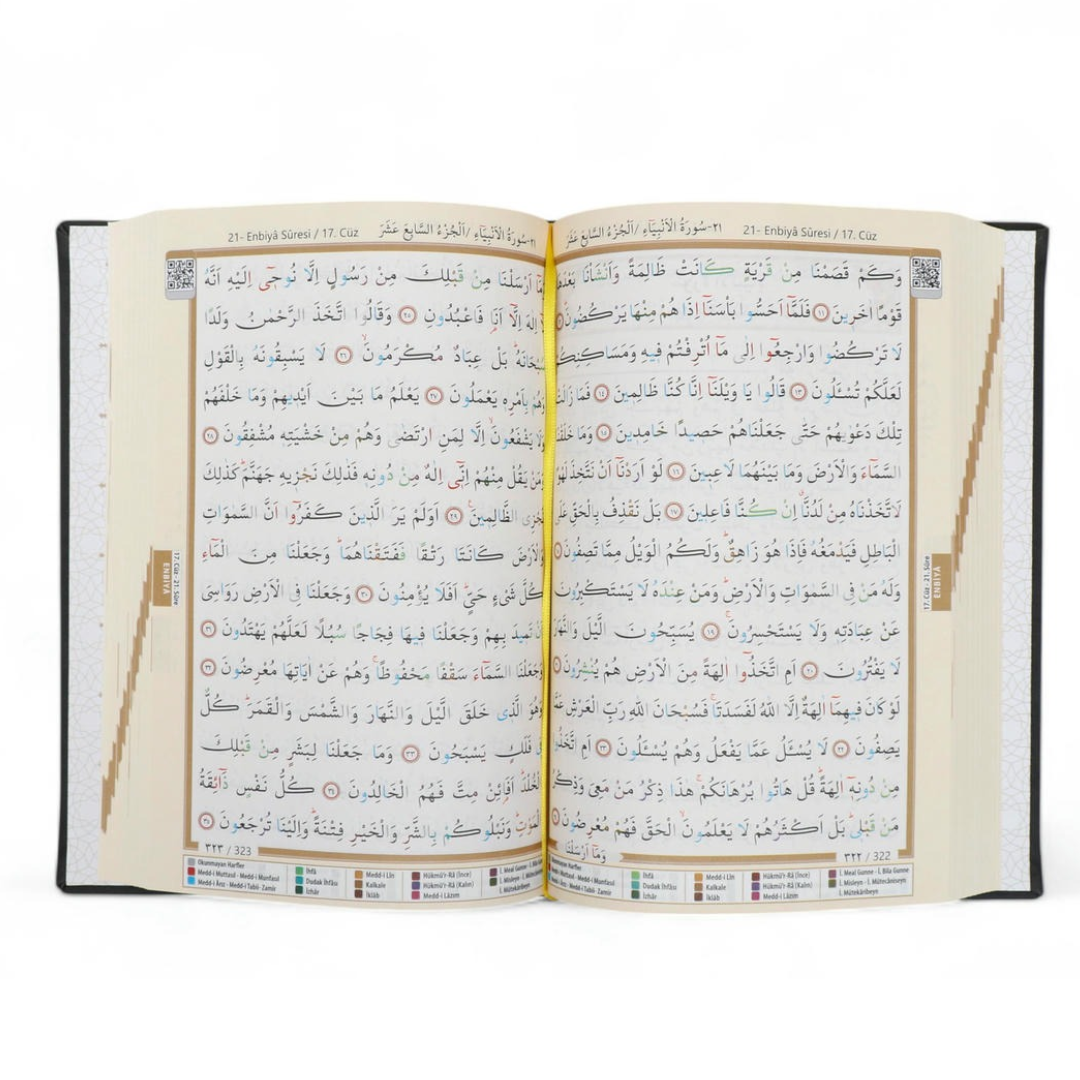 ٢١-سُورَةُ الْاَنْبِيَاءِ / اَلْجُزْءُ السَّابِعَ عَشَرَ 21- Enbiyâ Sûresi / 17. Cüz
وَكَمْ قَصَمْنَا مِنْ قَرْيَةٍ كَانَتْ ظَالِمَةً وَاَنْشَأْنَا بَعْدَهَا
قَوْمًا اٰخَرِينَ ﴿١١﴾ فَلَمَّٓا اَحَسُّوا بَأْسَنَٓا اِذَا هُمْ مِنْهَا يَرْكُضُونَ
لَا تَرْكُضُوا وَارْجِعُٓوا اِلٰى مَٓا اُتْرِفْتُمْ فِيهِ وَمَسَاكِنِكُمْ
لَعَلَّكُمْ تُسْـَٔلُونَ ﴿١٣﴾ قَالُوا يَا وَيْلَنَٓا اِنَّا كُنَّا ظَالِمِينَ ﴿١٤﴾ فَمَا زَالَتْ
تِلْكَ دَعْوٰيهُمْ حَتّٰى جَعَلْنَاهُمْ حَصِيدًا خَامِدِينَ ﴿١٥﴾ وَمَا خَلَقْنَا
السَّمَٓاءَ وَالْاَرْضَ وَمَا بَيْنَهُمَا لَاعِبِينَ ﴿١٦﴾ لَوْ اَرَدْنَٓا اَنْ نَتَّخِذَ لَهْوًا
لَاتَّخَذْنَاهُ مِنْ لَدُنَّٓا اِنْ كُنَّا فَاعِلِينَ ﴿١٧﴾ بَلْ نَقْذِفُ بِالْحَقِّ عَلَى
الْبَاطِلِ فَيَدْمَغُهُ فَاِذَا هُوَ زَاهِقٌ وَلَكُمُ الْوَيْلُ مِمَّا تَصِفُونَ
وَلَهُ مَنْ فِي السَّمٰوَاتِ وَالْاَرْضِ وَمَنْ عِنْدَهُ لَا يَسْتَكْبِرُونَ
عَنْ عِبَادَتِهِ وَلَا يَسْتَحْسِرُونَ ﴿١٩﴾ يُسَبِّحُونَ الَّيْلَ وَالنَّهَارَ
لَا يَفْتُرُونَ ﴿٢٠﴾ اَمِ اتَّخَذُٓوا اٰلِهَةً مِنَ الْاَرْضِ هُمْ يُنْشِرُونَ
لَوْ كَانَ فِيهِمَٓا اٰلِهَةٌ اِلَّا اللّٰهُ لَفَسَدَتَا فَسُبْحَانَ اللّٰهِ رَبِّ الْعَرْشِ عَمَّا
يَصِفُونَ ﴿٢٢﴾ لَا يُسْـَٔلُ عَمَّا يَفْعَلُ وَهُمْ يُسْـَٔلُونَ ﴿٢٣﴾ اَمِ اتَّخَذُوا
مِنْ دُونِهِٓ اٰلِهَةً قُلْ هَاتُوا بُرْهَانَكُمْ هٰذَا ذِكْرُ مَنْ مَعِيَ وَذِكْرُ
مَنْ قَبْلِي بَلْ اَكْثَرُهُمْ لَا يَعْلَمُونَ الْحَقَّ فَهُمْ مُعْرِضُونَ
وَمَٓا اَرْسَلْنَا
٣٢٢ / 322
17. Cüz - 21. Sûre
ENBİYÂ
Okunmayan Harfler
Medd-i Muttasıl - Medd-i Munfasıl
Medd-i Ârız - Medd-i Tabîi - Zamir
İhfâ
Dudak İhfâsı
İzhâr
Medd-i Lîn
Kalkale
İklâb
Hükmü'r-Râ (İnce)
Hükmü'r-Râ (Kalın)
Medd-i Lâzım
İ. Meal Gunne - İ. Bila Gunne
İ. Misleyn - İ. Mütecâniseyn
İ. Mütekâribeyn
21- Enbiyâ Sûresi / 17. Cüz ٢١-سُورَةُ الْاَنْبِيَاءِ / اَلْجُزْءُ السَّابِعَ عَشَرَ
وَمَٓا اَرْسَلْنَا مِنْ قَبْلِكَ مِنْ رَسُولٍ اِلَّا نُوحِٓي اِلَيْهِ اَنَّهُ
لَٓا اِلٰهَ اِلَّٓا اَنَا فَاعْبُدُونِ ﴿٢٥﴾ وَقَالُوا اتَّخَذَ الرَّحْمٰنُ وَلَدًا
سُبْحَانَهُ بَلْ عِبَادٌ مُكْرَمُونَ ﴿٢٦﴾ لَا يَسْبِقُونَهُ بِالْقَوْلِ
وَهُمْ بِاَمْرِهِ يَعْمَلُونَ ﴿٢٧﴾ يَعْلَمُ مَا بَيْنَ اَيْدِيهِمْ وَمَا خَلْفَهُمْ
وَلَا يَشْفَعُونَ اِلَّا لِمَنِ ارْتَضٰى وَهُمْ مِنْ خَشْيَتِهِ مُشْفِقُونَ ﴿٢٨﴾
وَمَنْ يَقُلْ مِنْهُمْ اِنِّٓي اِلٰهٌ مِنْ دُونِهِ فَذٰلِكَ نَجْزِيهِ جَهَنَّمَ كَذٰلِكَ
نَجْزِي الظَّالِمِينَ ﴿٢٩﴾ اَوَلَمْ يَرَ الَّذِينَ كَفَرُٓوا اَنَّ السَّمٰوَاتِ
وَالْاَرْضَ كَانَتَا رَتْقًا فَفَتَقْنَاهُمَا وَجَعَلْنَا مِنَ الْمَٓاءِ
كُلَّ شَيْءٍ حَيٍّ اَفَلَا يُؤْمِنُونَ ﴿٣٠﴾ وَجَعَلْنَا فِي الْاَرْضِ رَوَاسِيَ
اَنْ تَمِيدَ بِهِمْ وَجَعَلْنَا فِيهَا فِجَاجًا سُبُلًا لَعَلَّهُمْ يَهْتَدُونَ ﴿٣١﴾
وَجَعَلْنَا السَّمَٓاءَ سَقْفًا مَحْفُوظًا وَهُمْ عَنْ اٰيَاتِهَا مُعْرِضُونَ ﴿٣٢﴾
وَهُوَ الَّذِي خَلَقَ الَّيْلَ وَالنَّهَارَ وَالشَّمْسَ وَالْقَمَرَ كُلٌّ
فِي فَلَكٍ يَسْبَحُونَ ﴿٣٣﴾ وَمَا جَعَلْنَا لِبَشَرٍ مِنْ قَبْلِكَ
الْخُلْدَ اَفَا۬ئِنْ مِتَّ فَهُمُ الْخَالِدُونَ ﴿٣٤﴾ كُلُّ نَفْسٍ ذَٓائِقَةُ
الْمَوْتِ وَنَبْلُوكُمْ بِالشَّرِّ وَالْخَيْرِ فِتْنَةً وَاِلَيْنَا تُرْجَعُونَ ﴿٣٥﴾
٣٢٣ / 323
17. Cüz - 21. Sûre
ENBİYÂ
Okunmayan Harfler
Medd-i Muttasıl - Medd-i Munfasıl
Medd-i Ârız - Medd-i Tabîi - Zamir
İhfâ
Dudak İhfâsı
İzhâr
Medd-i Lîn
Kalkale
İklâb
Hükmü'r-Râ (İnce)
Hükmü'r-Râ (Kalın)
Medd-i Lâzım
İ. Meal Gunne - İ. Bila Gunne
İ. Misleyn - İ. Mütecâniseyn
İ. Mütekâribeyn